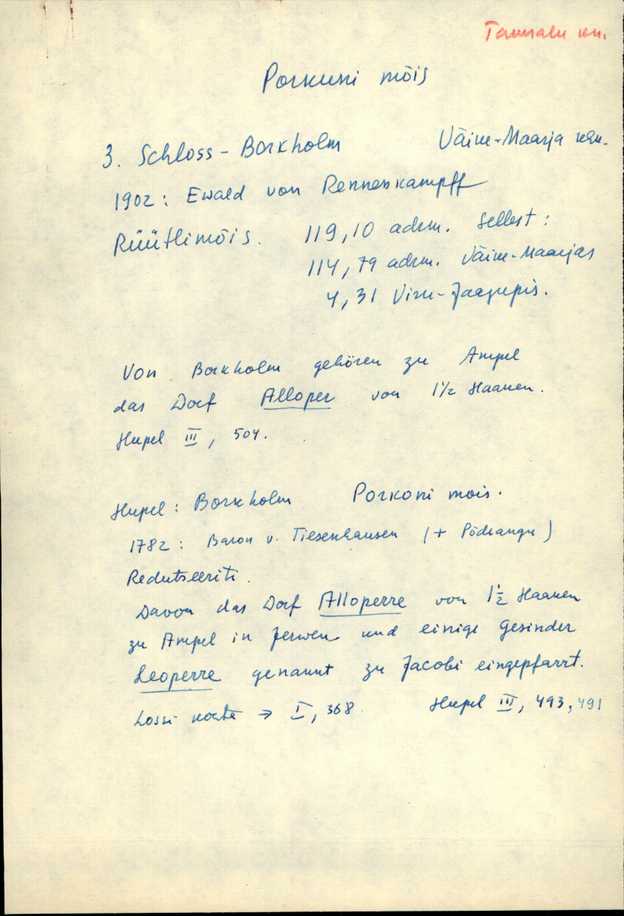 Tamsalu kn.
Porkuni mõis
3. Schloss-Borkholm Väike-Maarja khn.
1902: Ewald von Rennenkampff
Rüütlimõis. 119,10 adrm. Sellest:
114,79 adrm. Väike-Maarjas
4,31 Viru-Jaagupis.
Von Borkholm gehören zu Ampel
das Dorf Alloper von 1½ Haaken.
Hupel III, 504.
Hupel: Borkholm Porkoni mois.
1782: Baron v. Tiesenhausen (+ Põdrangu)
Redutseeriti.
Davon das Dorf Alloperre von 1½ Haaken
zu Ampel in Jerwen und einige Gesinder
Leoperre genannt zu Jacobi eingepfarrt.
Lossi kohta → I, 368. Hupel III, 493, 491